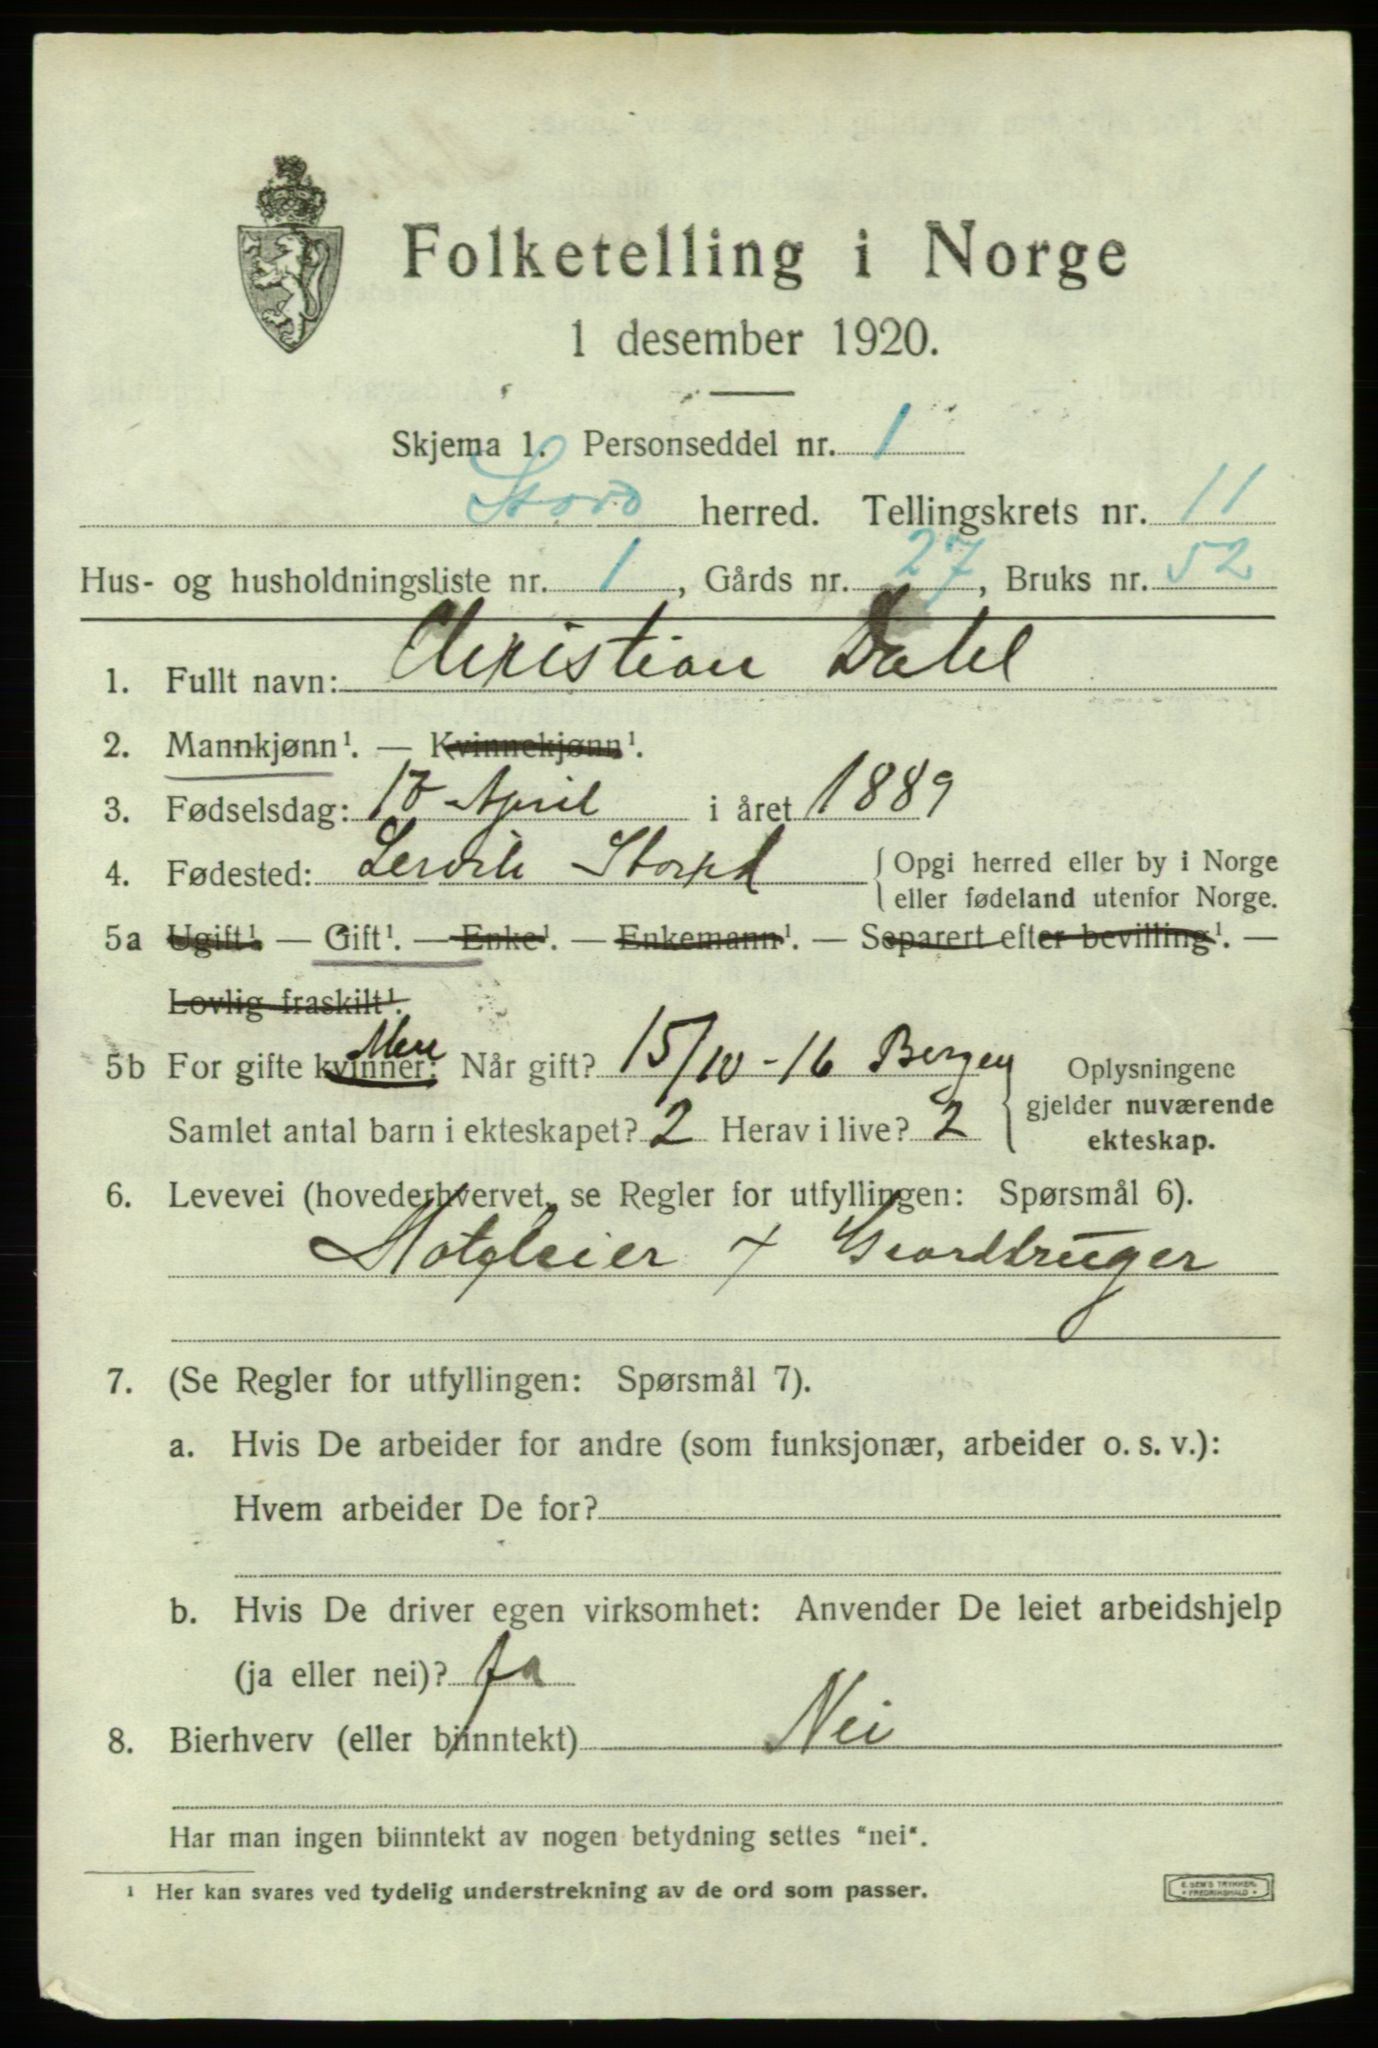 Folketelling i Norge
1 desember 1920.
Skjema 1. Personseddel nr. 1
Stord herred. Tellingskrets nr. 11
Hus- og husholdningsliste nr. 1, Gårds nr. 27, Bruks nr. 52
1. Fullt navn: Christian Dahl
2. Mannkjønn¹. — Kvinnekjønn¹.
3. Fødselsdag: April i året 1889
4. Fødested: Lervik Stord { Opgi herred eller by i Norge
eller fødeland utenfor Norge.
5a Ugift¹. — Gift¹. — Enke¹. — Enkemann¹. — Separert efter bevilling¹. —
Lovlig fraskilt¹.
Men
5b For gifte kvinner: Når gift? 15/10-16 Bergen
Samlet antal barn i ekteskapet? 2 Herav i live? 2
Oplysningene
gjelder nuværende
ekteskap.
6. Levevei (hovederhvervet, se Regler for utfyllingen: Spørsmål 6).
+ Gardbruger
7. (Se Regler for utfyllingen: Spørsmål 7).
a. Hvis De arbeider for andre (som funksjonær, arbeider o. s. v.):
Hvem arbeider De for?
b. Hvis De driver egen virksomhet: Anvender De leiet arbeidshjelp
(ja eller nei)? ja
8. Bierhverv (eller biinntekt) Nei
Har man ingen biinntekt av nogen betydning settes "nei".
¹ Her kan svares ved tydelig understrekning av de ord som passer.
E. SEM'S TRYKKERI
• FREDRIKSHALD •